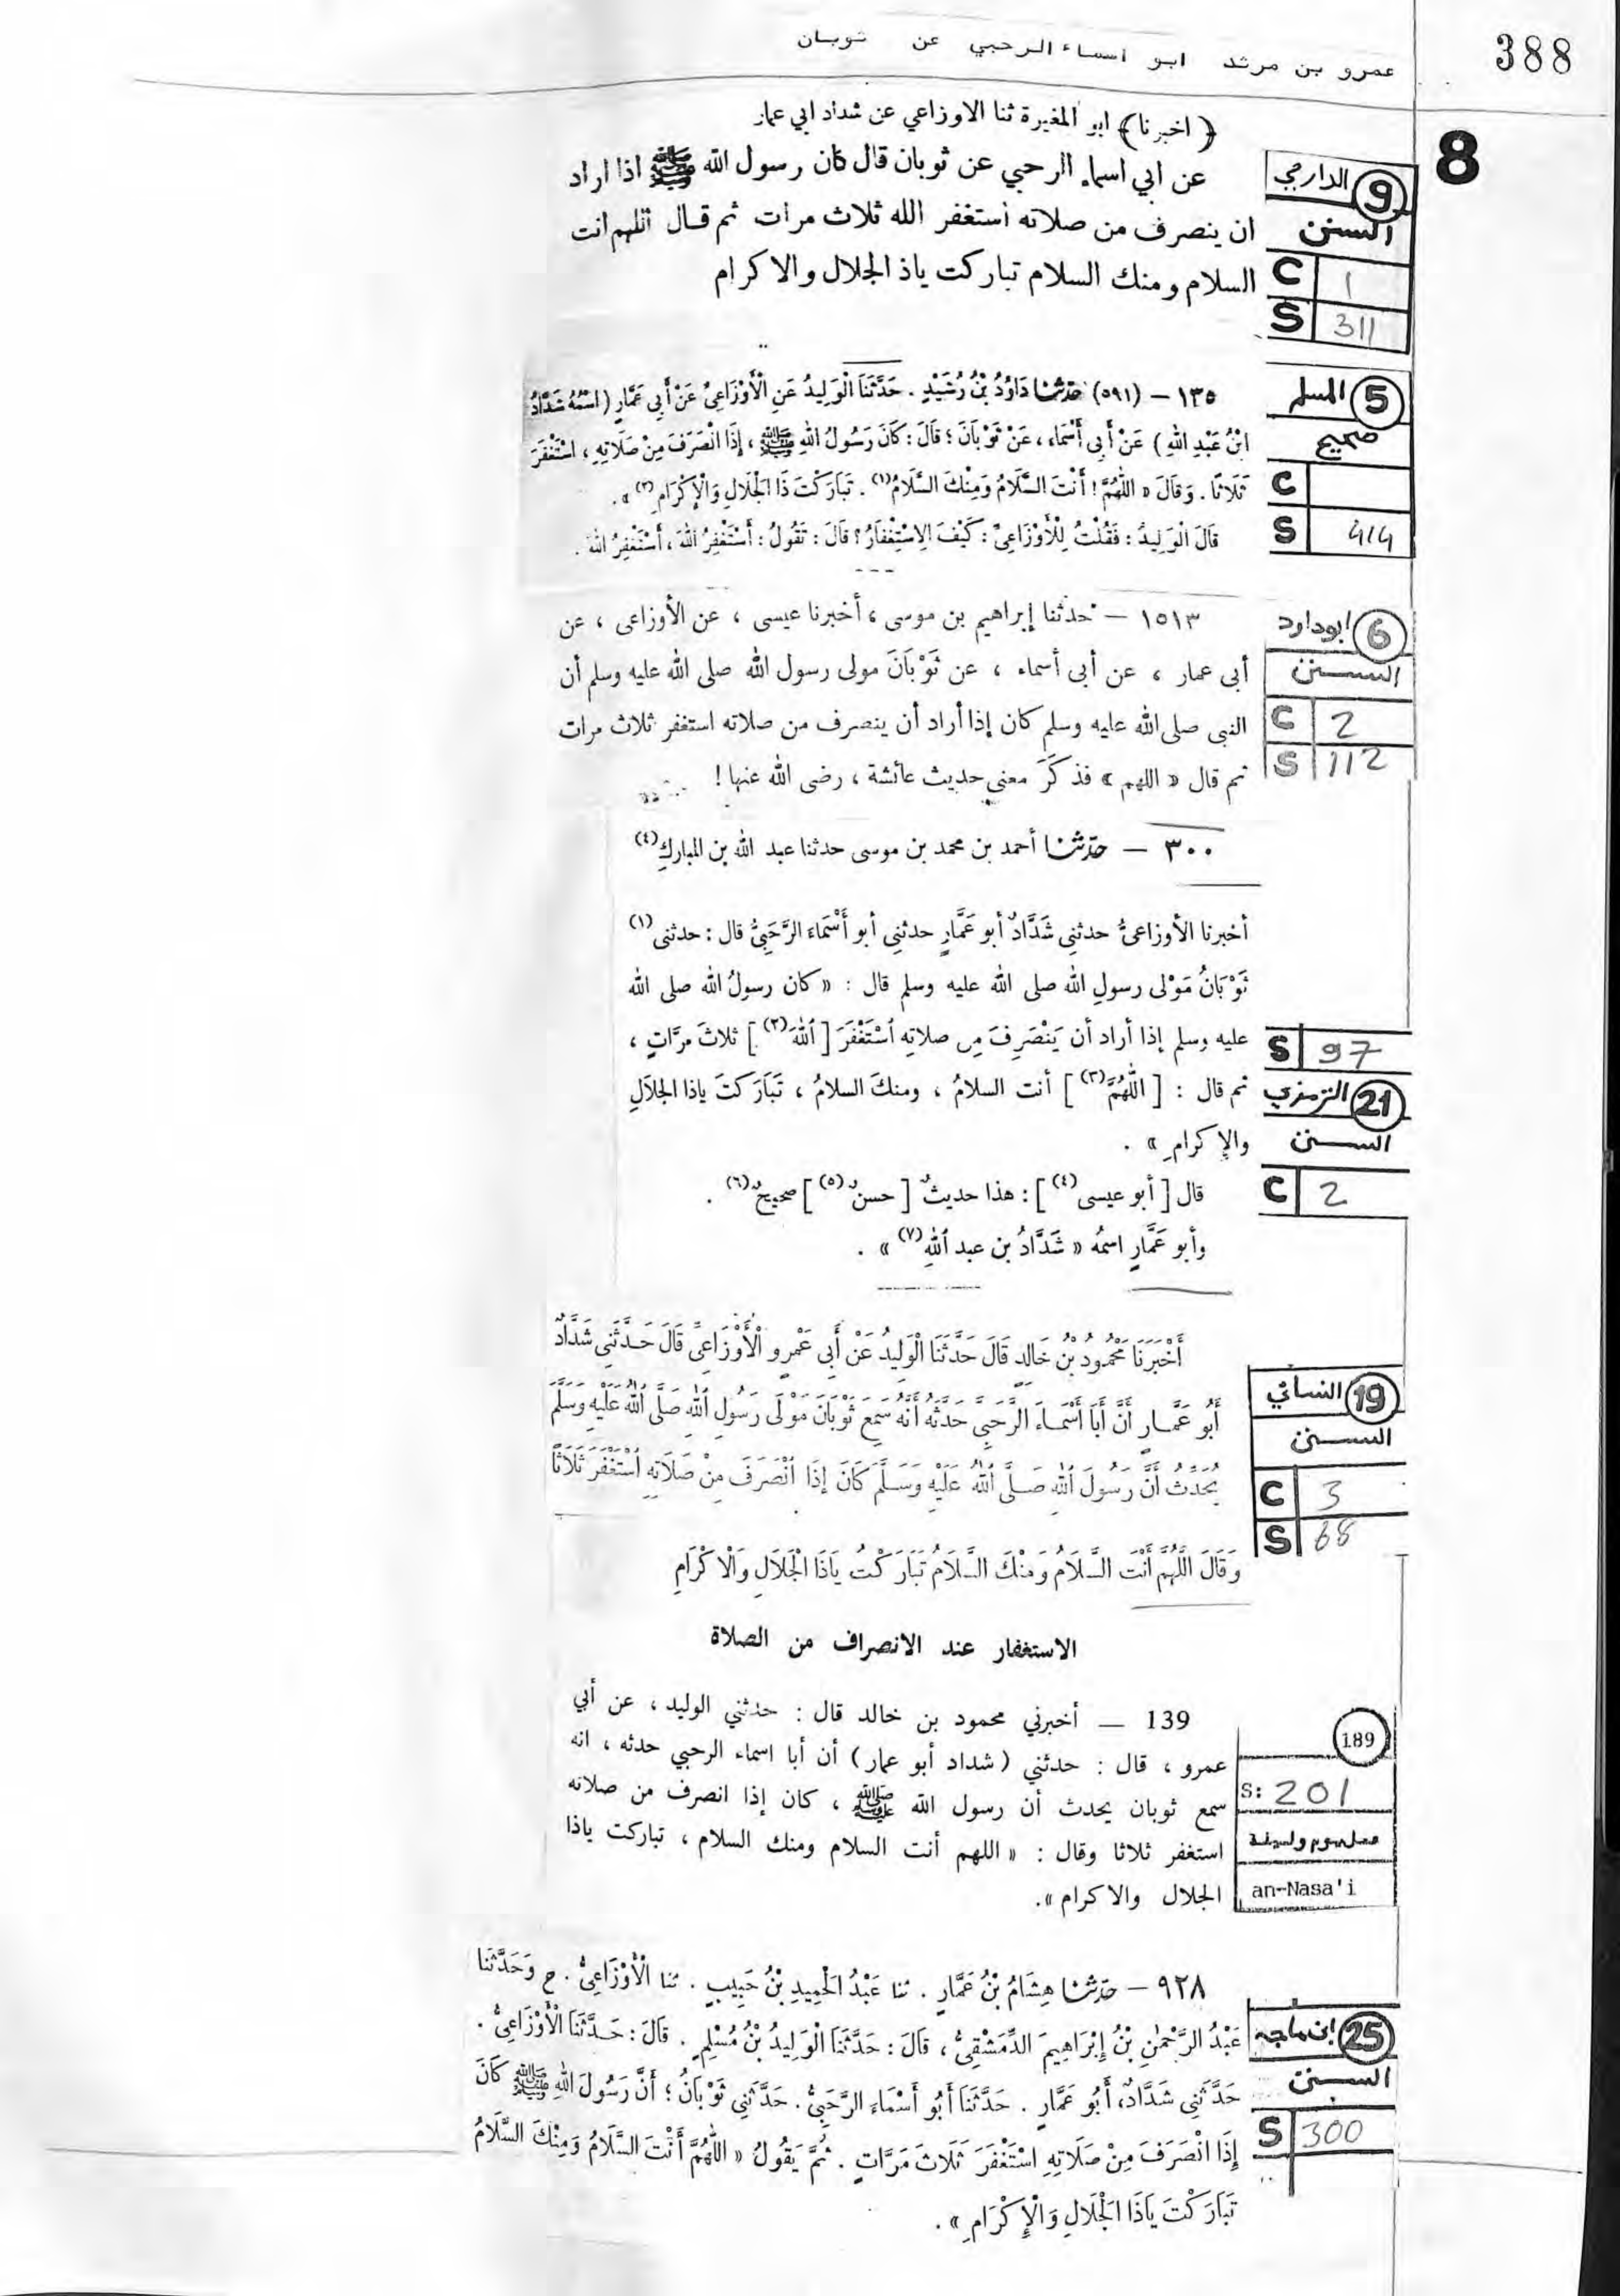 388
عمرو بن مرثد ابو اسماء الرحبي عن ثوبان
8
﴿ اخبرنا ﴾ ابو المغيرة ثنا الاوزاعي عن شداد ابي عمار
عن ابي اسماء الرحبي عن ثوبان قال كان رسول الله ﷺ اذا اراد
ان ينصرف من صلاته استغفر الله ثلاث مرات ثم قال اللهم انت
السلام ومنك السلام تباركت ياذ الجلال والاكرام
9 الدارمي
السنن
C 1
S 311
١٣٥ – (٥٩١) حدثنا دَاوُدُ بْنُ رُشَيْدٍ . حَدَّثَنَا الْوَلِيدُ عَنِ الْأَوْزَاعِيِّ عَنْ أَبِي عَمَّارٍ ( اسْمُهُ شَدَّادُ
ابْنُ عَبْدِ اللهِ ) عَنْ أَبِي أَسْمَاءَ ، عَنْ ثَوْبَانَ ؛ قَالَ : كَانَ رَسُولُ اللهِ ﷺ ، إِذَا انْصَرَفَ مِنْ صَلَاتِهِ ، اسْتَغْفَرَ
ثَلَاثًا . وَقَالَ « اللّٰهُمَّ ! أَنْتَ السَّلَامُ وَمِنْكَ السَّلَامُ(١) . تَبَارَكْتَ ذَا الْجَلَالِ وَالْإِكْرَامِ(٢) » .
قَالَ الْوَلِيدُ : فَقُلْتُ لِلْأَوْزَاعِيِّ : كَيْفَ الِاسْتِغْفَارُ ؟ قَالَ : تَقُولُ : أَسْتَغْفِرُ اللهَ ، أَسْتَغْفِرُ اللهَ .
5 المسلم
صحيح
C
S 414
١٥١٣ – حدثنا إبراهيم بن موسى ، أخبرنا عيسى ، عن الأوزاعى ، عن
أبى عمار ، عن أبى أسماء ، عن ثَوْبَانَ مولى رسول الله صلى الله عليه وسلم أن
النبى صلى الله عليه وسلم كان إذا أراد أن ينصرف من صلاته استغفر ثلاث مرات
ثم قال « اللهم » فذكَرَ معنى حديث عائشة ، رضى الله عنها !
6 ابوداود
السنن
C 2
S 112
٣٠٠ – حدّثنا أحمد بن محمد بن موسى حدثنا عبد الله بن المباركِ(٤)
أخبرنا الأوزاعىُّ حدثنى شَدَّادٌ أبو عَمَّارٍ حدثنى أبو أَسْمَاءَ الرَّحَبِىُّ قال : حدثنى(١)
ثَوْبَانُ مَوْلى رسولِ الله صلى الله عليه وسلم قال : « كان رسولُ الله صلى الله
عليه وسلم إذا أراد أن يَنْصَرِفَ مِن صلاتِه اُسْتَغْفَرَ [ اللهَ(٢) ] ثلاثَ مرَّاتٍ ،
ثم قال : [ اللّٰهُمَّ(٣) ] أنت السلامُ ، ومنكَ السلامُ ، تَبَارَكتَ ياذا الجلَالِ
والإكرامِ » .
قال [ أبو عيسى(٤) ] : هذا حديثٌ [ حسنٌ(٥) ] صحيحٌ(٦) .
وأبو عَمَّارٍ اسمُه « شَدَّادُ بن عبد اللهِ(٧) » .
S 97
21 الترمذي
السنن
C 2
أَخْبَرَنَا مَحْمُودُ بْنُ خَالِدٍ قَالَ حَدَّثَنَا الْوَلِيدُ عَنْ أَبِي عَمْرٍو الْأَوْزَاعِيِّ قَالَ حَدَّثَنِي شَدَّادٌ
أَبُو عَمَّارٍ أَنَّ أَبَا أَسْمَاءَ الرَّحَبِيَّ حَدَّثَهُ أَنَّهُ سَمِعَ ثَوْبَانَ مَوْلَى رَسُولِ اللهِ صَلَّى اللهُ عَلَيْهِ وَسَلَّمَ
يُحَدِّثُ أَنَّ رَسُولَ اللهِ صَلَّى اللهُ عَلَيْهِ وَسَلَّمَ كَانَ إِذَا انْصَرَفَ مِنْ صَلَاتِهِ اسْتَغْفَرَ ثَلَاثًا
وَقَالَ اللَّهُمَّ أَنْتَ السَّلَامُ وَمِنْكَ السَّلَامُ تَبَارَكْتَ يَاذَا الْجَلَالِ وَالْاكْرَامِ
19 النسائي
السنن
C 3
S 68
الاستغفار عند الانصراف من الصلاة
139 — أخبرني محمود بن خالد قال : حدثني الوليد ، عن أبي
عمرو ، قال : حدثني ( شداد أبو عمار ) أن أبا اسماء الرحبي حدثه ، انه
سمع ثوبان يحدث أن رسول الله ﷺ ، كان إذا انصرف من صلاته
استغفر ثلاثا وقال : « اللهم أنت السلام ومنك السلام ، تباركت ياذا
الجلال والاكرام » .
189
S: 201
عمل يوم وليلة
an-Nasa'i
٩٢٨ – حدّثنا هِشَامُ بْنُ عَمَّارٍ . ثنا عَبْدُ الْحَمِيدِ بْنُ حَبِيبٍ . ثنا الْأَوْزَاعِيُّ . ح وَحَدَّثَنَا
عَبْدُ الرَّحْمٰنِ بْنُ إِبْرَاهِيمَ الدِّمَشْقِيُّ ، قَالَ : حَدَّثَنَا الْوَلِيدُ بْنُ مُسْلِمٍ . قَالَ : حَدَّثَنَا الْأَوْزَاعِيُّ .
حَدَّثَنِي شَدَّادٌ ، أَبُو عَمَّارٍ . حَدَّثَنَا أَبُو أَسْمَاءَ الرَّحَبِيُّ . حَدَّثَنِي ثَوْبَانُ ؛ أَنَّ رَسُولَ اللهِ ﷺ كَانَ
إِذَا انْصَرَفَ مِنْ صَلَاتِهِ اسْتَغْفَرَ ثَلَاثَ مَرَّاتٍ . ثُمَّ يَقُولُ « اللّٰهُمَّ أَنْتَ السَّلَامُ وَمِنْكَ السَّلَامُ
تَبَارَكْتَ يَاذَا الْجَلَالِ وَالْإِكْرَامِ » .
25 ابن ماجه
السنن
S 300